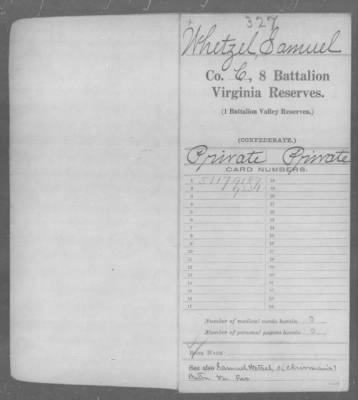 327
Whetzel, Samuel
Co. C, 8 Battalion
Virginia Reserves.
(1 Battalion Valley Reserves.)
(CONFEDERATE.)
Private Private
CARD NUMBERS.
1
2
3
4
5
6
7
8
9
10
11
12
13
14
15
16
17
Number of medical cards herein 0
Number of personal papers herein 0
BOOK MARK:
See also Samuel Wetzel, Chrisman's
Battn Va Res